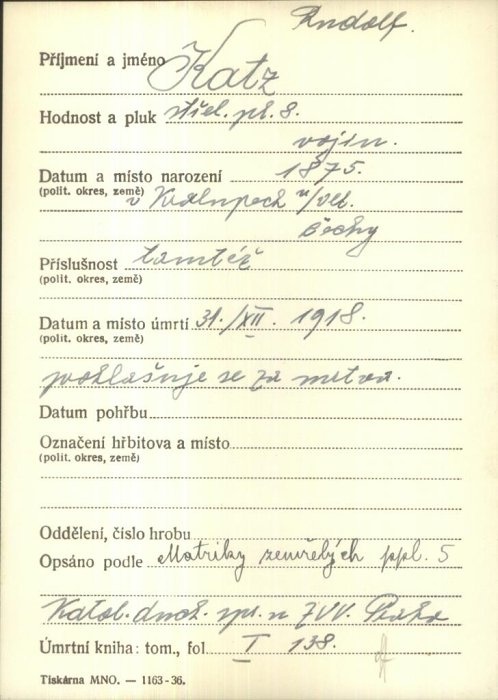 Rudolf.
Příjmení a jméno Katz
Hodnost a pluk střel. pl. 8.
vojín.
Datum a místo narození 1875.
(polit. okres, země) v Kralupech n/vlt.
Čechy
Příslušnost tamtéž
(polit. okres, země)
Datum a místo úmrtí 31./XII. 1918.
(polit. okres, země)
prohlašuje se za mrtva.
Datum pohřbu
Označení hřbitova a místo
(polit. okres, země)
Oddělení, číslo hrobu
Opsáno podle Matriky zemřelých ppl. 5
Katol. duch. spr. u ZVV. Praha
Úmrtní kniha: tom., fol I 138.
Tiskárna MNO. — 1163-36.